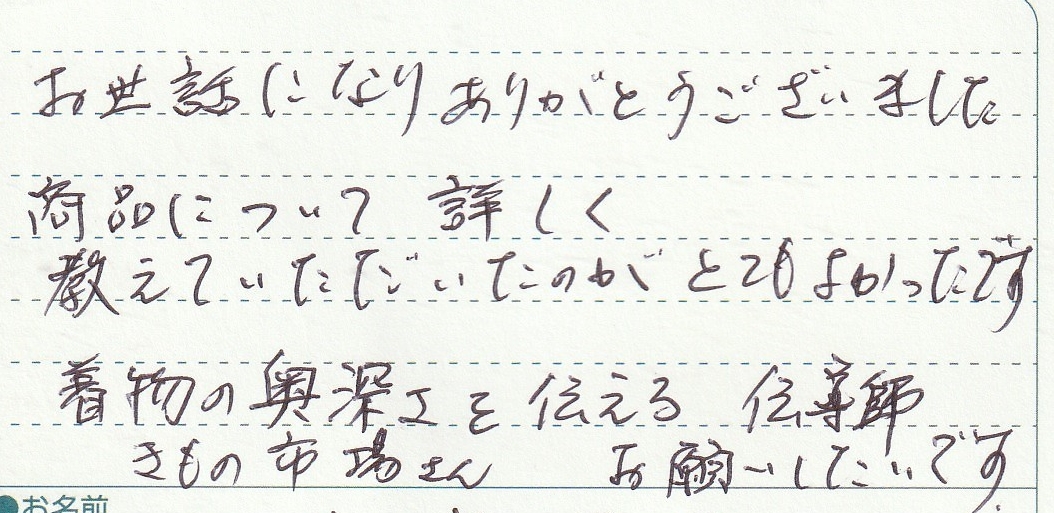 お世話になりありがとうございました
商品について 詳しく
教えていただいたのが とてもよかったです
着物の奥深さを伝える 伝導師
きもの市場さん お願いしたいです
●お名前